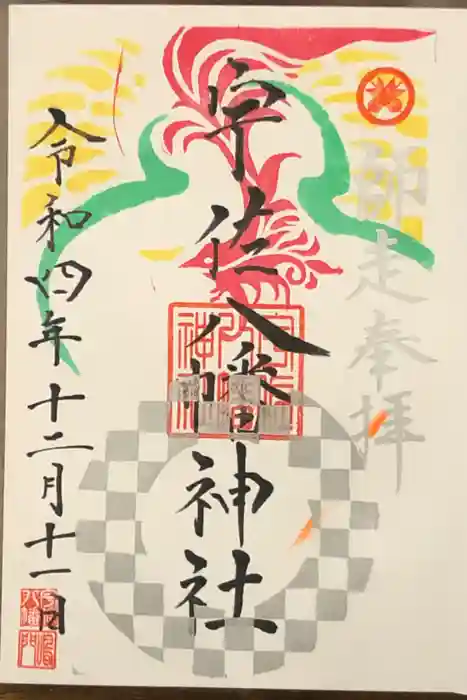 師走奉拝
宇佐八幡神社
令和四年十二月十一日